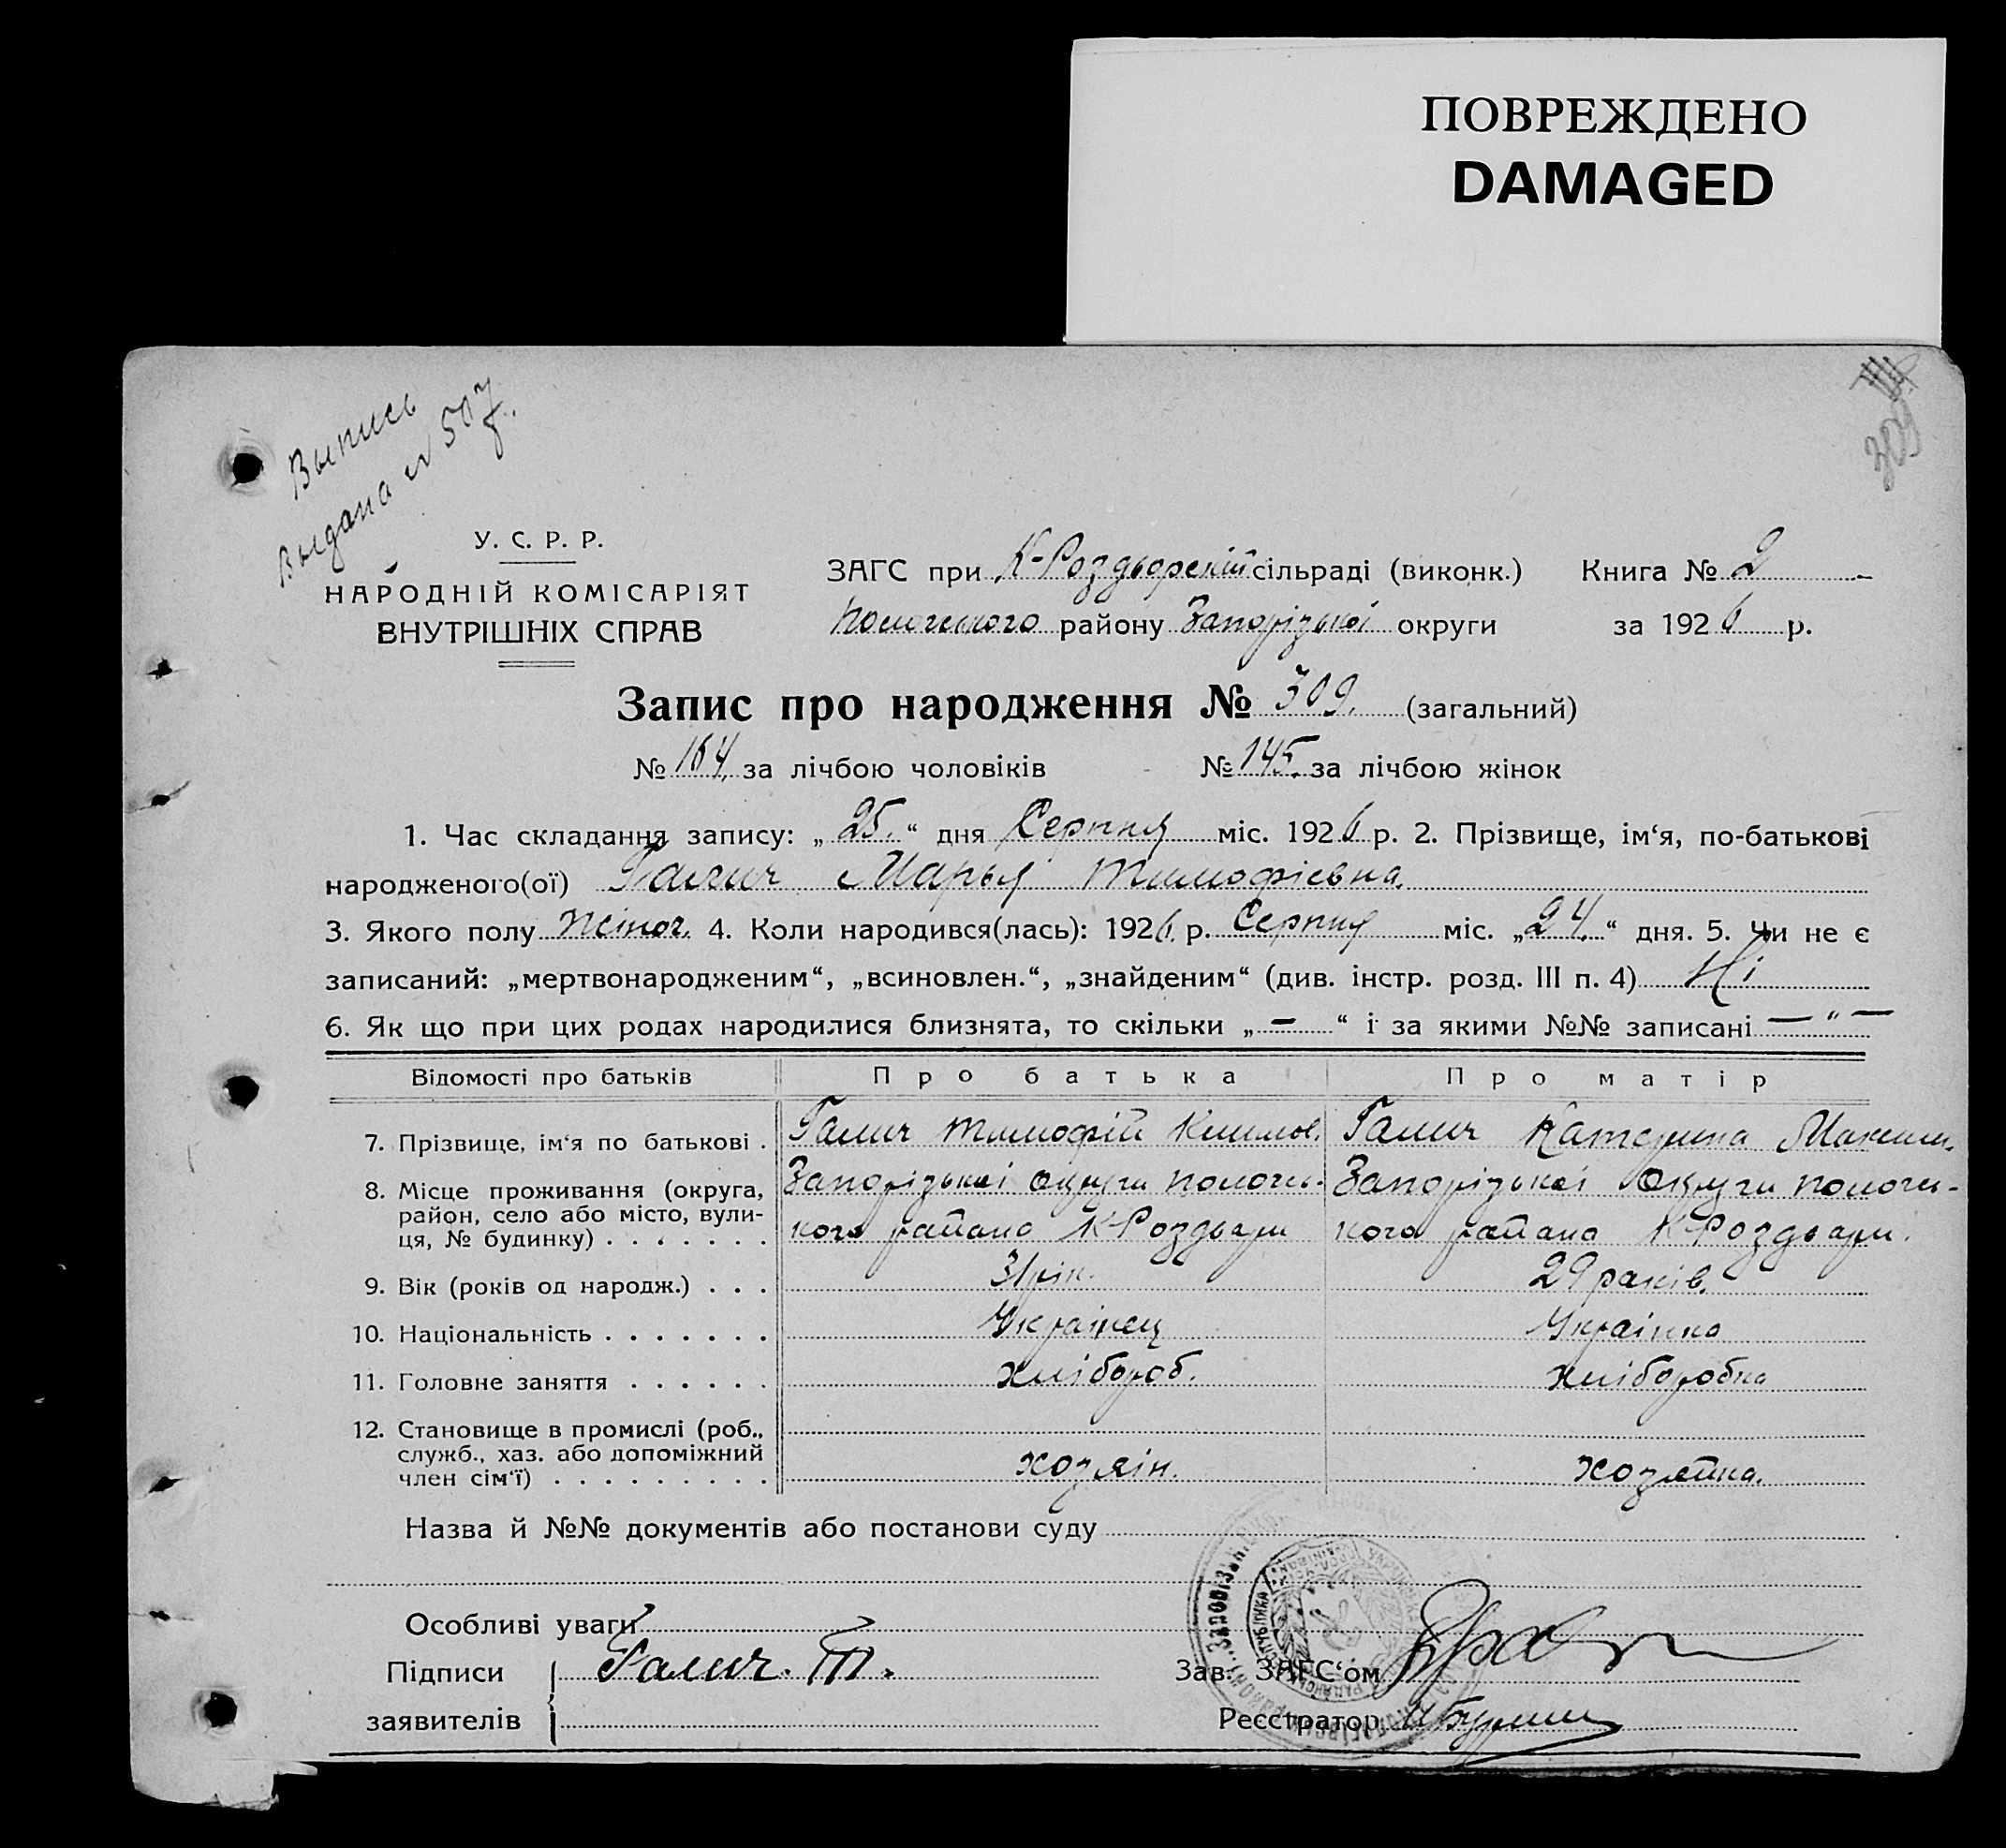 ПОВРЕЖДЕНО
DAMAGED
309
Выпись
выдана N 507.
У. С. Р. Р.
НАРОДНІЙ КОМІСАРІЯТ
ВНУТРІШНІХ СПРАВ
ЗАГС при К-Роздорскій сільраді (виконк.) Книга № 2
Пологського району Запорізької округи за 1926 р.
Запис про народження № 309. (загальний)
№ 164. за лічбою чоловіків № 145. за лічбою жінок
1. Час складання запису: „25.“ дня Серпня міс. 1926 р. 2. Прізвище, ім‘я, по-батькові
народженого(ої) Галич Марья Тимофієвна.
3. Якого полу жіноч. 4. Коли народився(лась): 1926 р. Серпня міс. „24.“ дня. 5. Чи не є
записаний: „мертвонародженим“, „всиновлен.“, „знайденим“ (див. інстр. розд. III п. 4) Ні
6. Як що при цих родах народилися близнята, то скільки „ — “ і за якими №№ записані — " —
Відомості про батьків Про батька Про матір
7. Прізвище, ім‘я по батькові . Галич Тимофій Климов. Галич Катерина Максим.
8. Місце проживання (округа, район, село або місто, вулиця, № будинку) . . . . . . . Запорізької округи Пологсь-
кого района К-Роздори Запорізької Округи Пологсь-
кого района К-Роздори.
9. Вік (років од народж.) . . . 31 рік. 29 років.
10. Національність . . . . . . . Українец Українка
11. Головне заняття . . . . . . хлібороб. хліборобка
12. Становище в промислі (роб.,
служб., хаз. або допоміжний
член сім‘ї) . . . . . . . . . хозяін. хозяйка.
Назва й №№ документів або постанови суду
Особливі уваги
Підписи Галич. Т. Зав. ЗАГС‘ом
заявителів Реєстратор